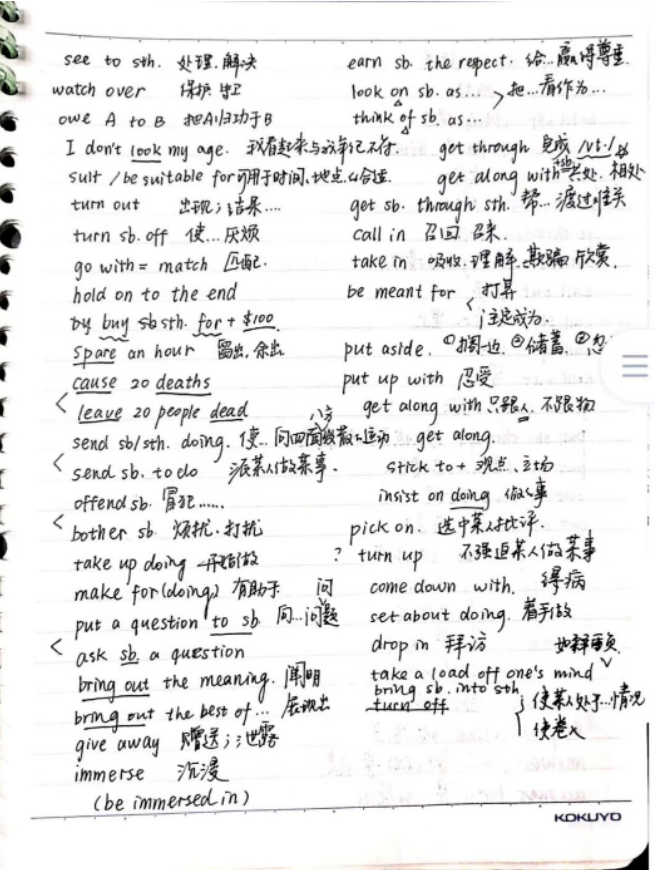 see to sth. 处理.解决
watch over 保护 守卫
owe A to B 把A归功于B
I don't look my age. 我看起来与我年纪不符.
suit / be suitable for 可用于时间、地点 合适
turn out 出现;结果....
turn sb. off 使...厌烦
go with = match 匹配.
hold on to the end
by buy sb sth. for + $100.
spare an hour 留出,余出
cause 20 deaths
leave 20 people dead
send sb/sth. doing. 使... 向四面八方散 运动
send sb. to do 派某人做某事.
offend sb. 冒犯......
bother sb. 烦扰.打扰
take up doing 开始做
make for (doing) 有助于
put a question to sb. 向...问问题
ask sb. a question
bring out the meaning. 阐明
bring out the best of... 展现出
give away 赠送;泄露
immerse 沉浸
(be immersed in)
earn sb. the repect. 给...赢得尊重.
look on sb. as... 把...看作为...
think of sb as...
get through 完成 /vt./
get along with +sb. 共处.相处
get sb. through sth. 帮...渡过难关
call in 召回 召来.
take in 吸收.理解.欺骗 欣赏.
be meant for 打算
注定成为
put aside. ①搁一边 ②储蓄. ③忽
put up with 忍受
get along with 只跟人. 不跟物
get along.
stick to + 观点、立场
insist on doing 做事
pick on. 选中某人批评.
? turn up 不强迫某人做某事
come down with. 得病
set about doing. 着手做
drop in 拜访
如释重负
take a load off one's mind
bring sb. into sth
turn off
使某人处于...情况
使卷入
KOKUYO